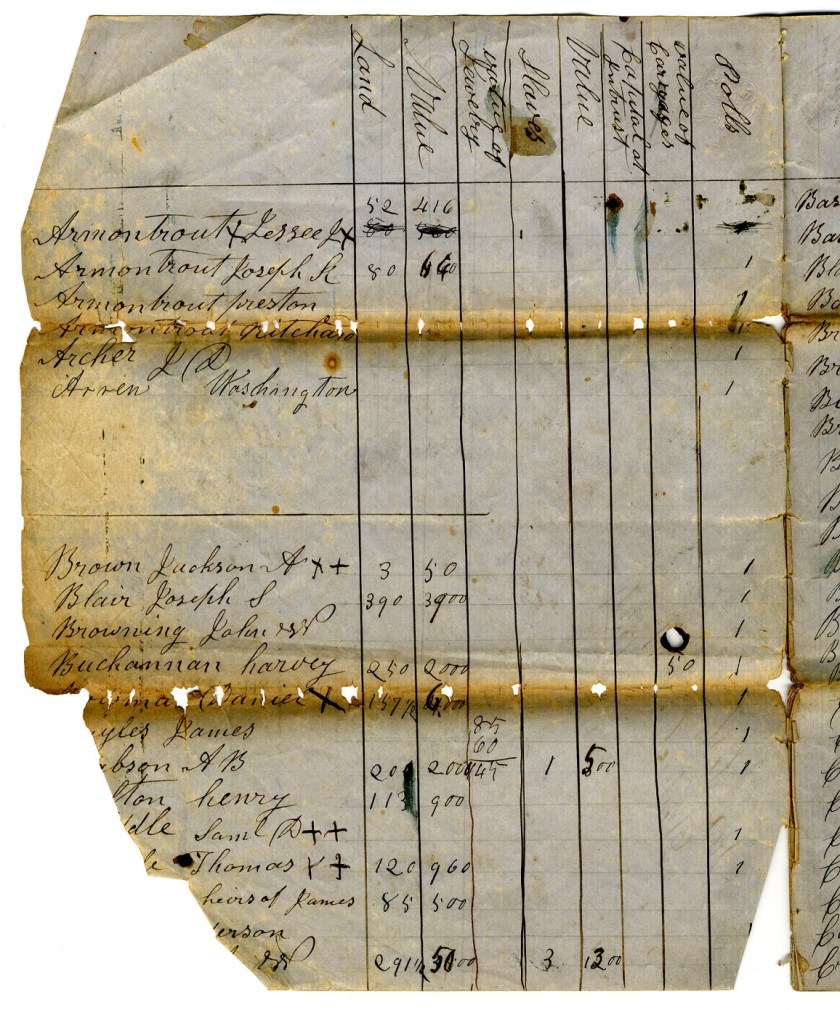 Land Value value of Jewelry Slaves Value Capital at Intrust value of Carrages Polls
52 416
Armontrout x Jessee J x
Armontrout Joseph K 80 640 1
Armontrout preston 1
Armontrout Ritchard 1
Archer J D 1
Arren Washington 1
Brown Jackson A x + 3 50 1
Blair Joseph S 390 3900 1
Browning John W 1
Buchannan harvey 250 2000 50 1
Daniel x 157 1/2 1
yles James 85 1
60
abson A B 200 2000 145 1 500 1
lton henry 113 900
ddle Saml D + + 1
le Thomas x + 120 960 1
heirs of James 85 500
erson
W 291 1/2 3 1300
Bar
Ba
Bl
Ba
Br
Br
Be
Br
B
B
B
B
B
B